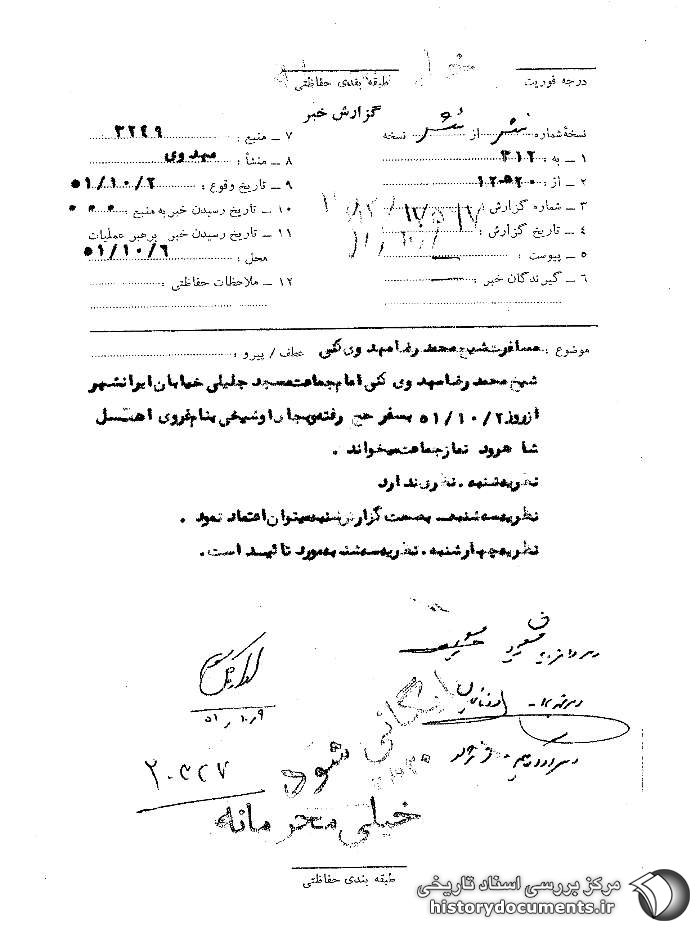 درجه فوریت
طبقه بندی حفاظتی
گزارش خبر
نسخهٔ شماره از نسخه
۱ ـ به : ۳۱۲
۲ ـ از : ۱۲ ۵۲۰
۳ ـ شماره گزارش :
۴ ـ تاریخ گزارش :
۵ ـ پیوست :
۶ ـ گیرندگان خبر :
۷ ـ منبع : ۳۲۴۹
۸ ـ منشأ : مهدوی
۹ ـ تاریخ وقوع : ۵۱/۱۰/۲
۱۰ ـ تاریخ رسیدن خبر به منبع :
۱۱ ـ تاریخ رسیدن خبر برهبر عملیات
محل : ۵۱/۱۰/۶
۱۲ ـ ملاحظات حفاظتی :
موضوع : مسافرت شیخ محمد رضا مهدوی کنی عطف / پیرو :
شیخ محمد رضا مهدوی کنی امام جماعت مسجد جلیلی خیابان ایرانشهر
از روز ۵۱/۱۰/۲ بسفر حج رفته و بجا ر او شیخی بنام غروی اهتسل
شا هرود نماز جماعت میخواند .
نظریه شنبه . نظری ندارد
نظریه سه شنبه ـ بصحت گزارش شنبه میتوان اعتماد نمود .
نظریه چهارشنبه . نظریه سه شنبه مورد تا ئید است .
بایگانی شود
۵۱/۱۰/۹
خیلی محرمانه
طبقه بندی حفاظتی
مرکز بررسی اسناد تاریخی
historydocuments.ir